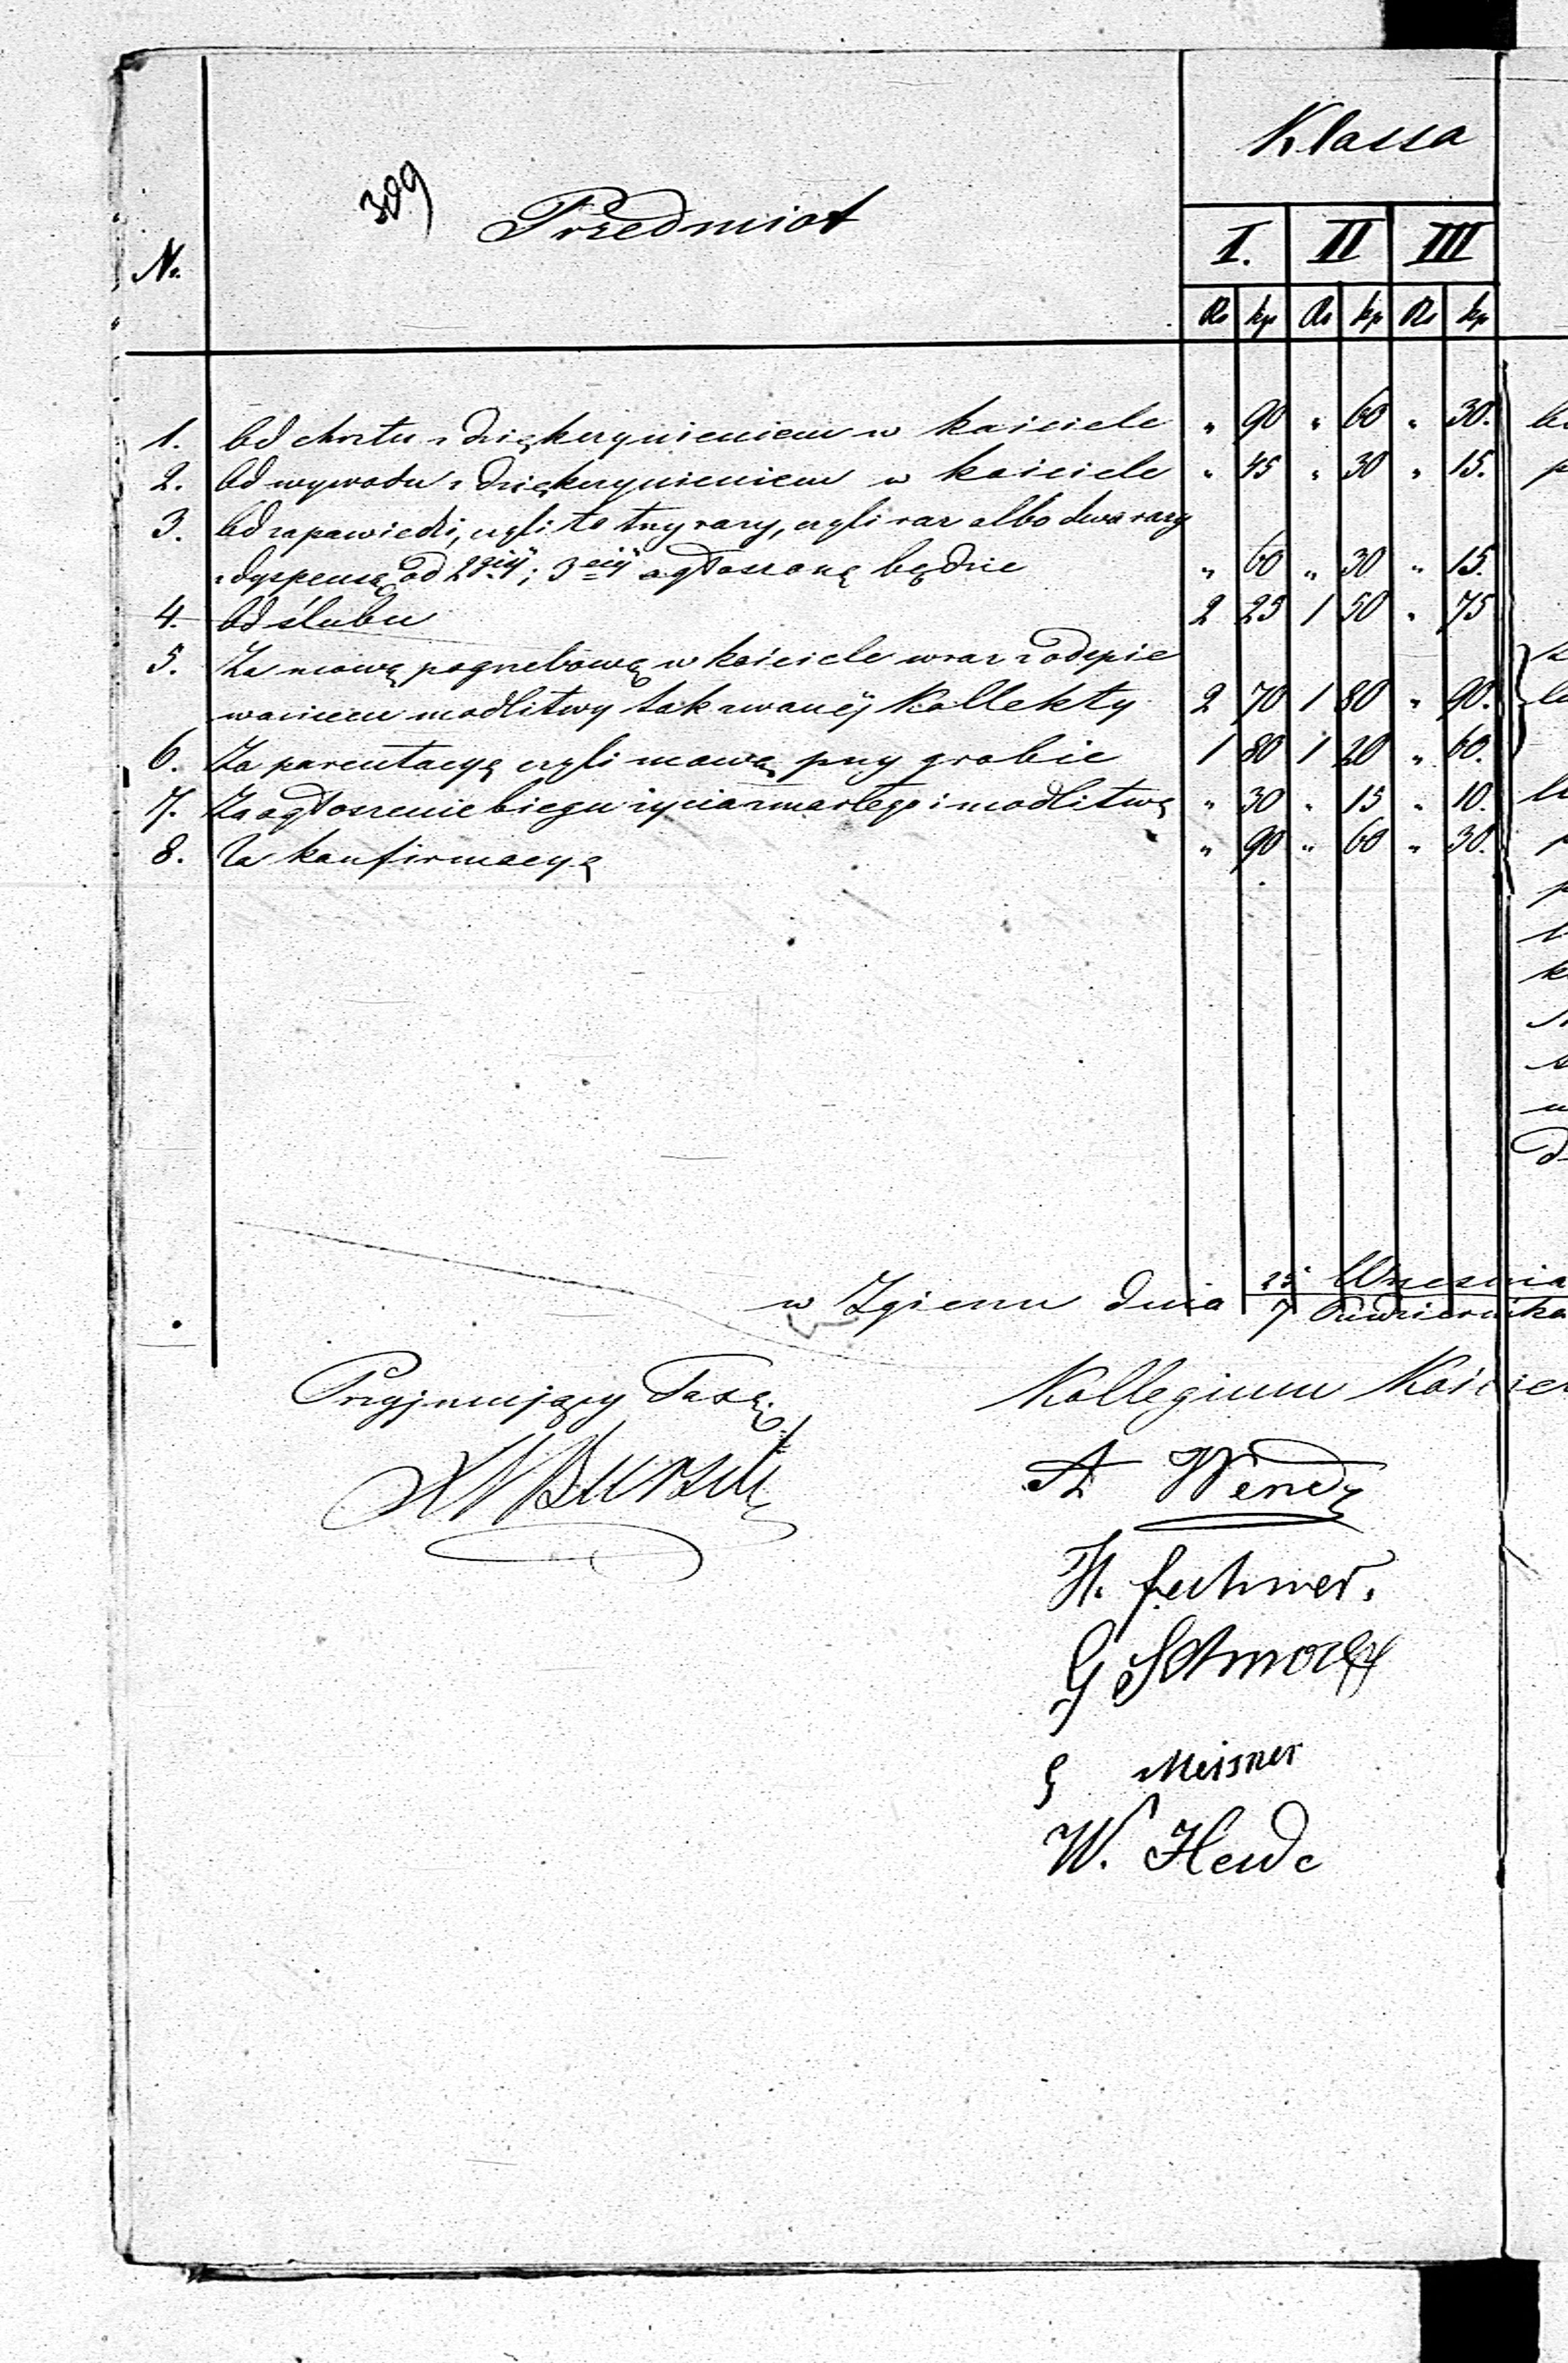 Klassa
309
Przedmiot
No.
I. II III
Rs kp Rs kp Rs kp
1. Od chrztu z dziękczynieniem w kościele " 90 " 60 " 30.
2. Od wywodu z dziękczynieniem w kościele " 45 " 30 " 15.
3. Od zapowiedzi, czyli to trzy razy, czyli raz albo dwa razy
z dyspensą od 2giéj i 3ciéj ogłoszoną będzie " 60 " 30 " 15.
4. Od ślubu 2 25 1 50 " 75
5. Za mowę pogrzebową w kościele wraz z odspie
waniem modlitwy tak zwanéj Kollekty 2 70 1 80 " 90.
6. Za parentacyą czyli mowę przy grobie 1 80 1 20 " 60.
7. Za ogłoszenie biegu życia zmarłego i modlitwę " 30 " 15 " 10.
8. Za konfirmacyą " 90 " 60 " 30.
w Zgierzu dnia 25 Września
7 Października
Przyjmujący Taxę. Kollegium Kościel
A Wende
H. Lechner.
G
Meisner
W. Heide